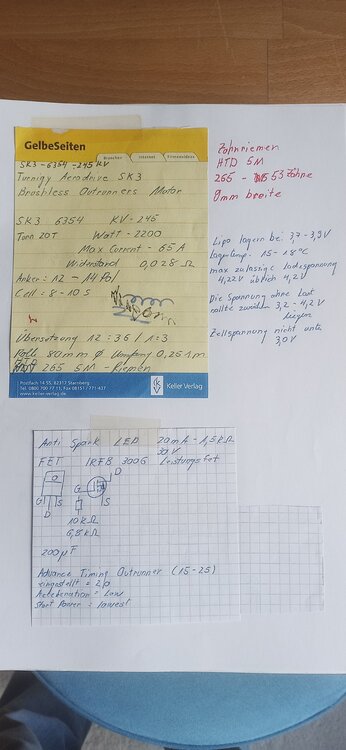 GelbeSeiten
Branchen Internet Firmenvideos
SK3-6354-245KV
Turnigy Aerodrive SK3
Brushless Outrunners Motor
SK3 6354 KV-245
Turn 20T Watt-2200
Max Current - 65A
Widerstand 0,028 Ω
Anker: 12 - 14 Pol
Cell: 8-10 S
Übersetzung 12:36 / 1:3
80mm Ø Umfang 0,251m
265 5M - Riemen
Postfach 14 55, 82317 Starnberg
Tel. 0800 700 77 11, Fax 08151 / 771-437
www.keller-verlag.de
Keller Verlag
Zahnriemen
HTD 5M
265 - 53 Zähne
9mm breite
Lipo lagern bei 3,7-3,9V
Lagertemp. 15-18°C
max zulässige Ladespannung
4,22V üblich 4,2V
Die Spannung ohne Last
sollte zwischen 3,2-4,2V
liegen
Zellspannung nicht unter
3,0V
Anti Spark LED 20mA - 1,5kΩ
30V
FET IRFB 3006 Leistungsfet
D
G
S
G S
D
10kΩ
6,8kΩ
200µF
Advance Timing Outrunner (15-25)
eingestellt = 20
Acceleration = Low
Start Power = lowest